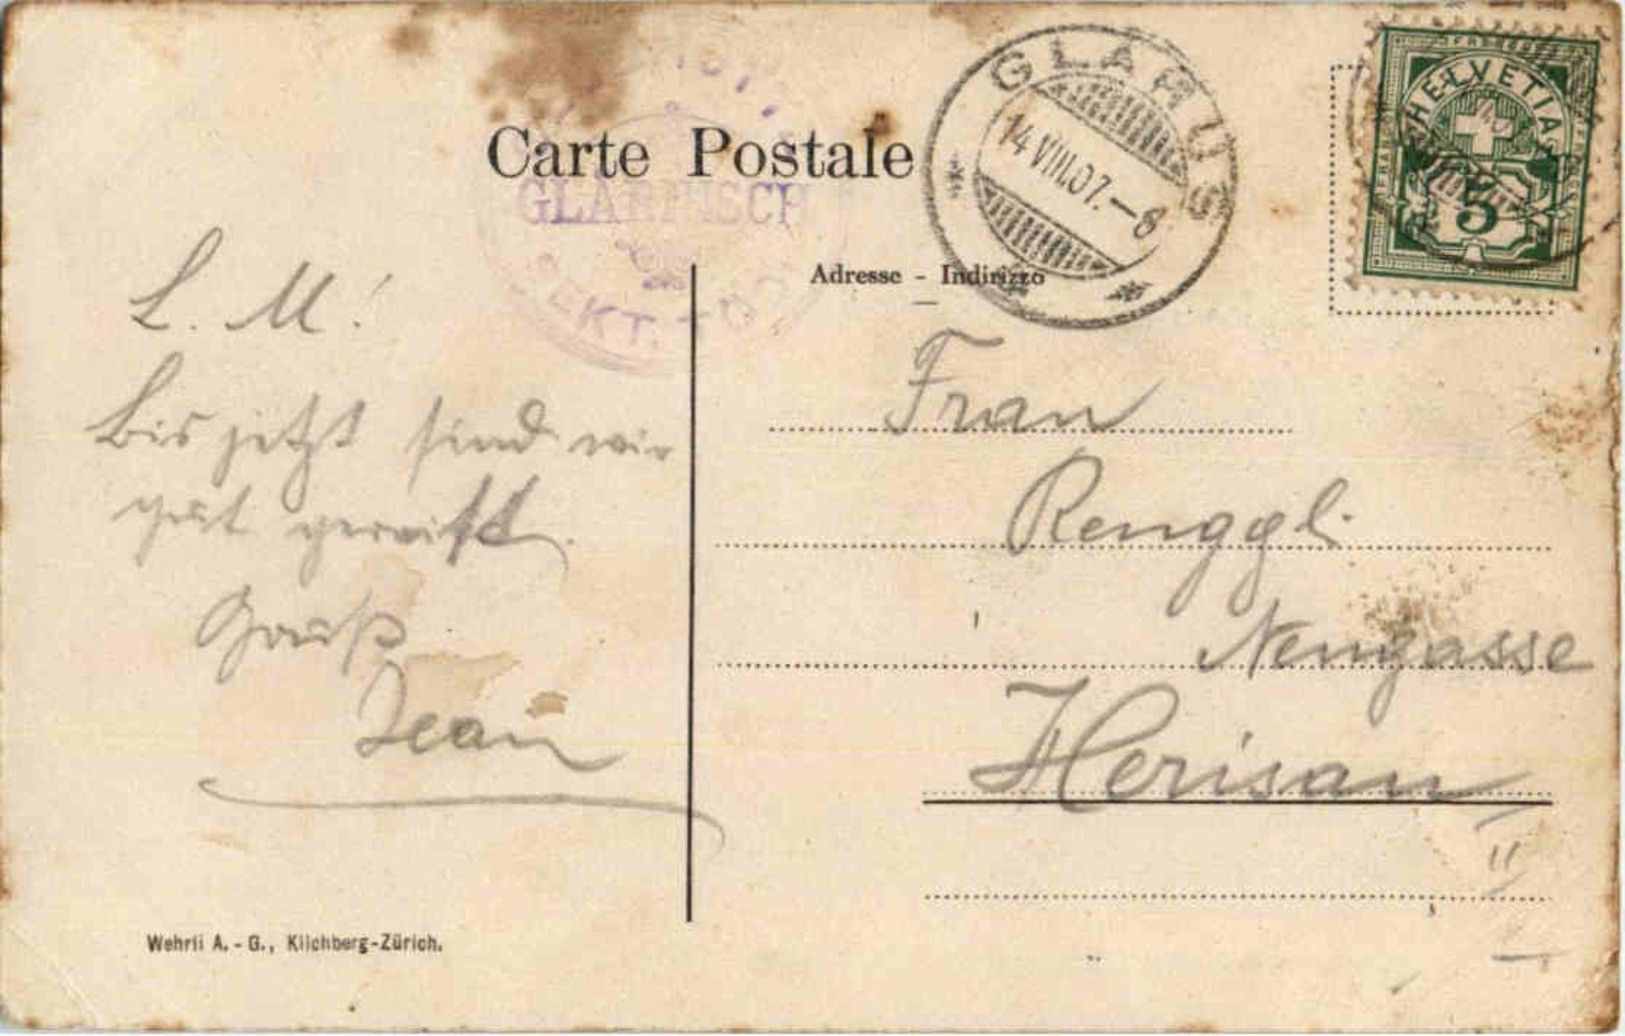 Carte Postale
GLÄRNISCH
SEKT.
GLARUS
14 VIII.07.–8
HELVETIA
5
Adresse - Indirizzo
L. M!
Bis jetzt sind wir
gut gereist.
Gruß
Jean
Frau
Renggli
Neugasse
Herisau
Wehrli A.-G., Kilchberg-Zürich.